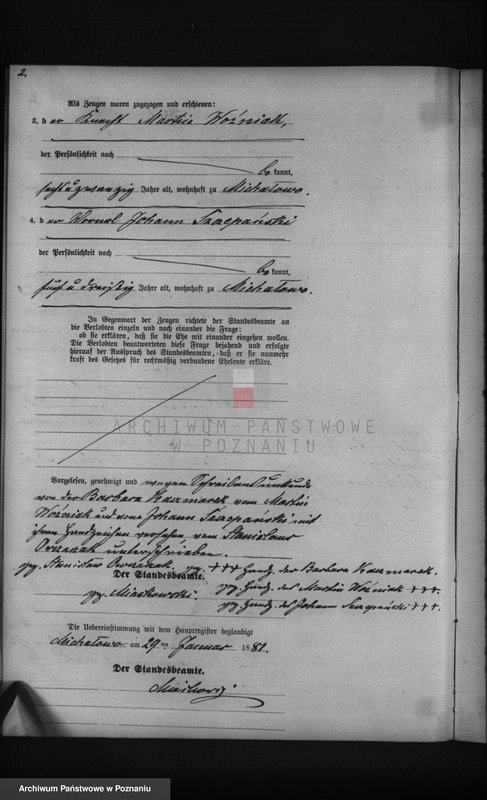 2.
Als Zeugen waren zugezogen und erschienen:
3. der Knecht Martin Woźniak,
der Persönlichkeit nach
bekannt,
Jahre alt, wohnhaft zu Michałowo.
4. der Johann Szczepański
der Persönlichkeit nach
bekannt,
Jahre alt, wohnhaft zu Michałowo.
In Gegenwart der Zeugen richtete der Standesbeamte an
die Verlobten einzeln und nach einander die Frage:
ob sie erklären, daß sie die Ehe mit einander eingehen wollen.
Die Verlobten beantworteten diese Frage bejahend und erfolgte
hierauf der Ausspruch des Standesbeamten, daß er sie nunmehr
kraft des Gesetzes für rechtmäßig verbundene Eheleute erkläre.
ARCHIWUM PAŃSTWOWE
W POZNANIU
Vorgelesen, genehmigt und wegen Schreibensunkunde
von der Barbara Kaczmarek, vom Martin
Woźniak und vom Johann Szczepański mit
ihren Handzeichen versehen vom Stanislaus
unterschrieben.
gez. Stanislaw gez. +++ Handz. der Barbara Kaczmarek.
Der Standesbeamte. gez. Handz. des Martin Woźniak +++.
gez. gez. Handz. des Johann Szczepański +++.
Die Uebereinstimmung mit dem Hauptregister beglaubigt
Michałowo am 29ten Januar 1882.
Der Standesbeamte.
Archiwum Państwowe w Poznaniu